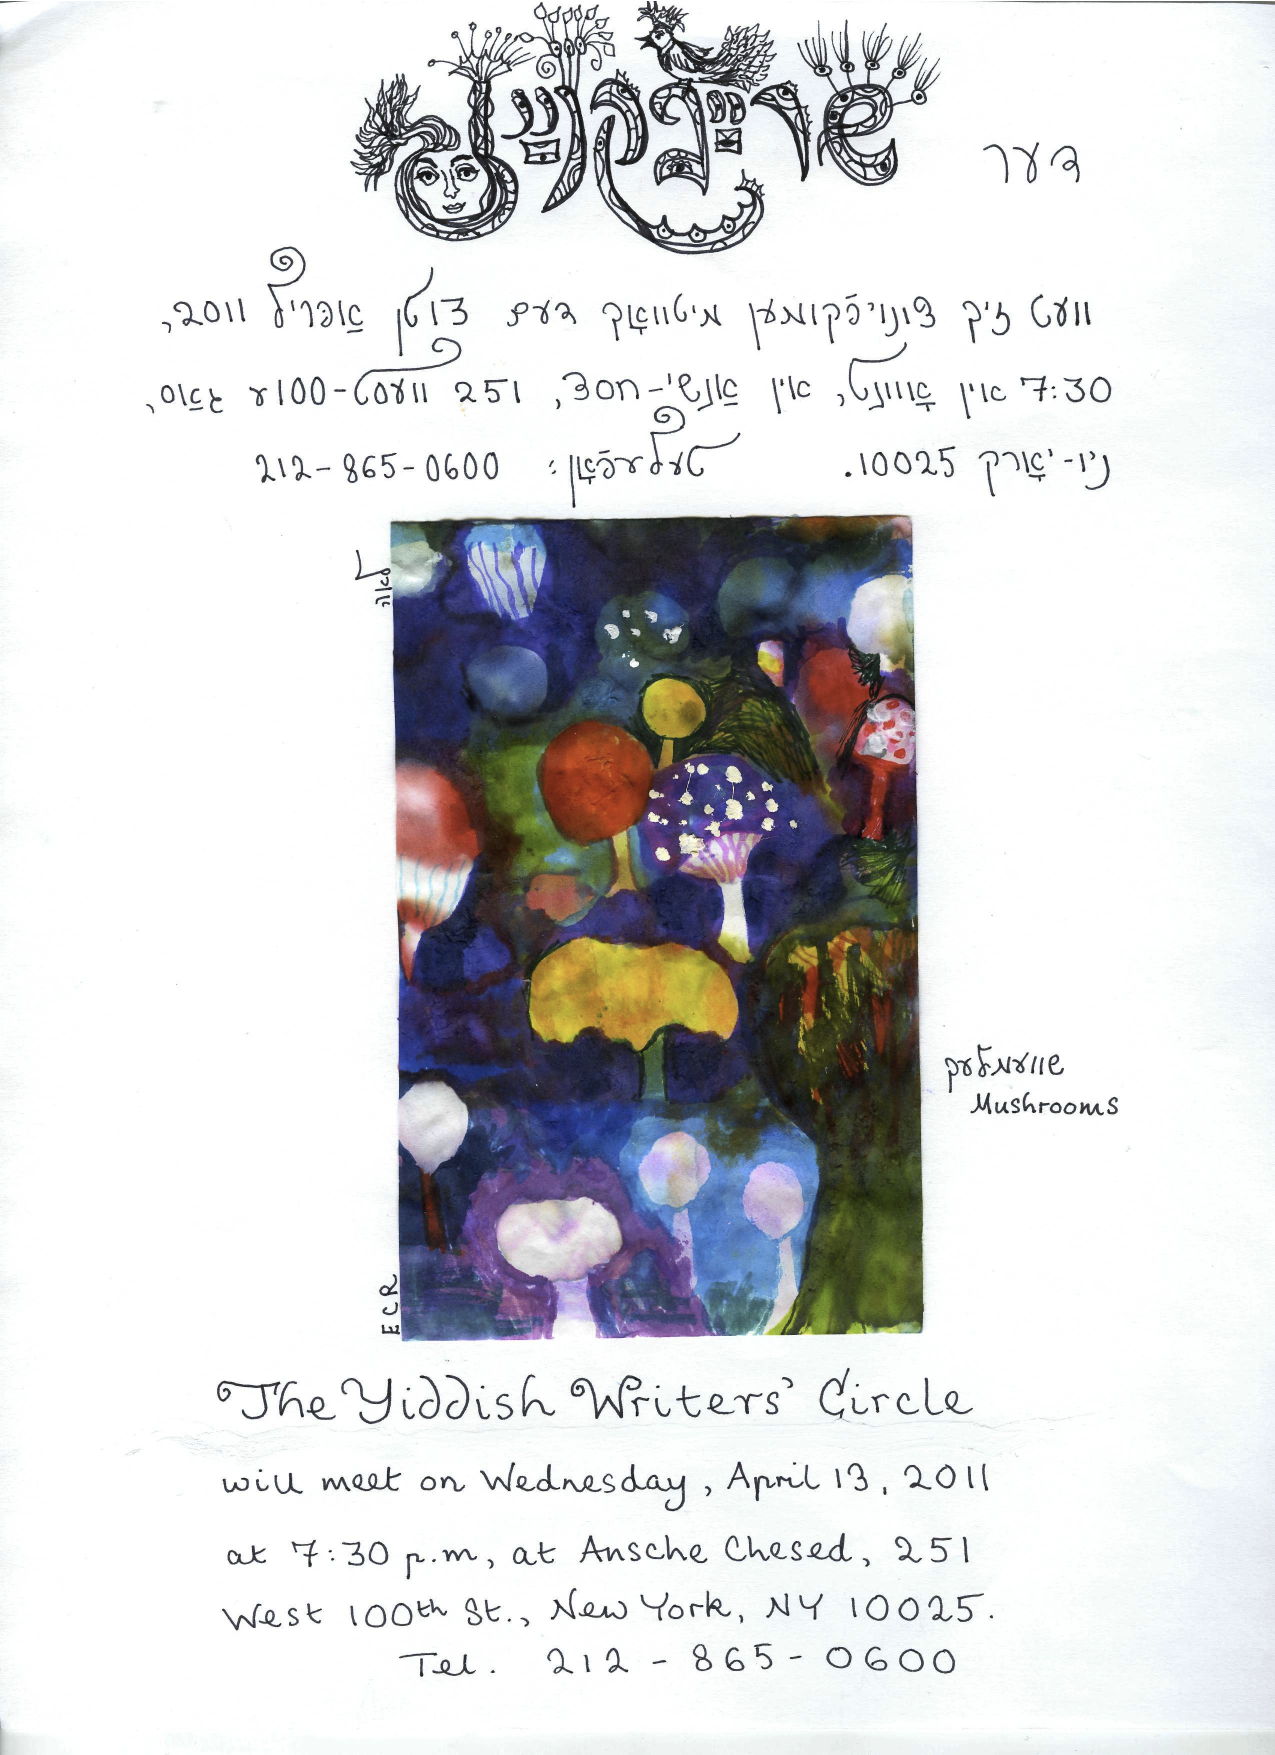 דער שרײַבקרײַזל
וועט זיך צונויפֿקומען מיטוואָך דעם 13טן אַפּריל 2011,
7:30 אין אָוונט, אין אַנשי-חסד, 251 וועסט-100ער גאַס,
ניו-יאָרק 10025. טעלעפֿאָן: 212-865-0600
לאה
שוועמלעך
Mushrooms
ECR
The Yiddish Writers' Circle
will meet on Wednesday, April 13, 2011
at 7:30 p.m, at Ansche Chesed, 251
West 100th St., New York, NY 10025.
Tel. 212-865-0600